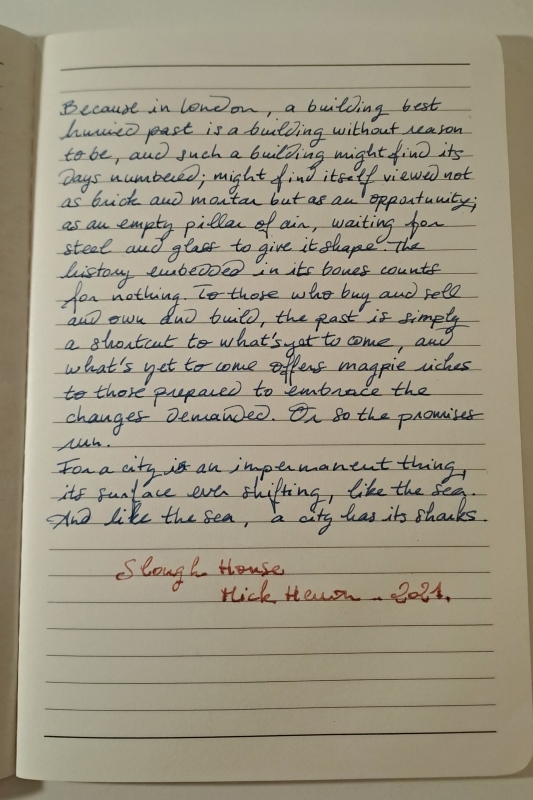 Because in London, a building best
hurried past is a building without reason
to be, and such a building might find its
days numbered; might find itself viewed not
as brick and mortar but as an opportunity;
as an empty pillar of air, waiting for
steel and glass to give it shape. The
history embedded in its bones counts
for nothing. To those who buy and sell
and own and build, the past is simply
a shortcut to what's yet to come, and
what's yet to come offers magpie riches
to those prepared to embrace the
changes demanded. Or so the promises
run.
For a city is an impermanent thing,
its surface ever shifting, like the sea.
And like the sea, a city has its sharks.
Slough House
Mick Herron - 2021.